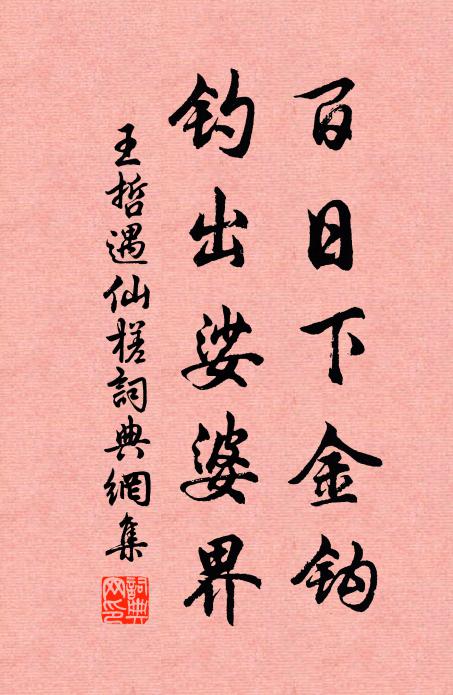 百日下金钩
钓出娑婆界
王哲遇仙槎詞典網集
詞典网印